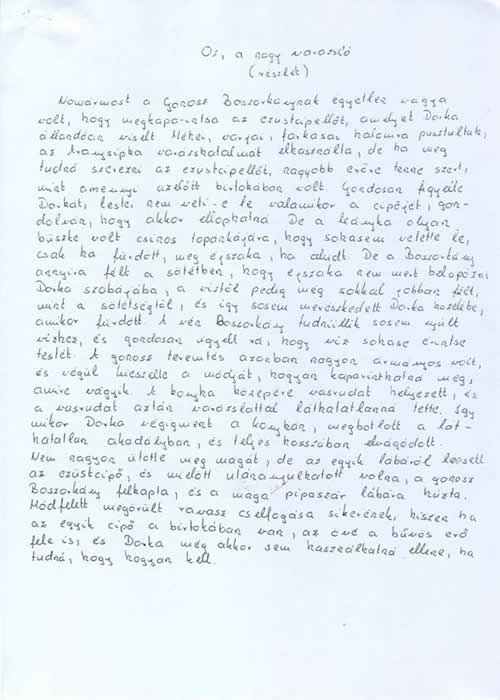 Oz, a nagy varázsló
(részlet)
Nowármost a Gonosz Boszorkánynak egyetlen vágya
volt, hogy megkaparintsa az ezüstcipellőt, amelyet Dorka
állandóan viselt. Méhei, varjai, farkasai halomra pusztultak,
az Aranysipka varázshatalmát elhasználta, de ha meg
tudná szerezni az ezüstcipellőt, nagyobb erőre tenne szert,
mint amennyi azelőtt birtokában volt. Gondosan figyelte
Dorkát, leste, nem veti-e le valamikor a cipőjét, gon-
dolván, hogy akkor ellophatná. De a leányka olyan
büszke volt csinos topánkájára, hogy sohasem vetette le,
csak ha fürdött, meg éjszaka, ha aludt. De a Boszorkány
annyira félt a sötétben, hogy éjszaka nem mert belopózni
Dorka szobájába, a víztől pedig még sokkal jobban félt,
mint a sötétségtől, és így sosem merészkedett Dorka közelébe,
amikor fürdött. A vén Boszorkány tudniillik sosem nyúlt
vízhez, és gondosan ügyelt rá, hogy víz sohase érintse
testét. A gonosz teremtés azonban nagyon ármányos volt,
és végül kieszelte a módját, hogyan kaparinthatná meg,
amire vágyik. A konyha közepére vasrudat helyezett, és
a vasrudat aztán varázslattal láthatatlanná tette. Így
mikor Dorka végigment a konyhán, megbotlott a lát-
hatatlan akadályban, és teljes hosszában elvágódott.
Nem nagyon ütötte meg magát, de az egyik lábáról leesett
az ezüstcipő, és mielőtt utánanyúlhatott volna, a gonosz
Boszorkány felkapta, és a maga pipaszár lábára húzta.
Módfelett megörült ravasz cselfogása sikerének, hiszen ha
az egyik cipő a birtokában van, az övé a bűvös erő
fele is, és Dorka még akkor sem használhatná ellene, ha
tudná, hogy hogyan kell.